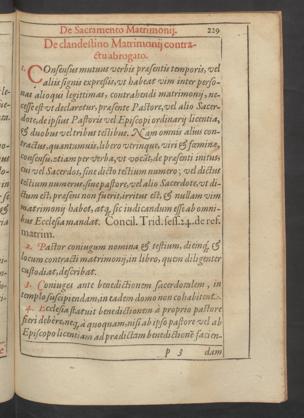 De Sacramento Matrimonij. 229
De clandestino Matrimonij contra-
ctu abrogato.
1. COnsensus mutuus verbis præsentis temporis, vel
alijs signis expressus, vt habeat vim inter perso-
nas alioqui legitimas, contrahendi matrimonij, ne-
cesse est vt declaretur, præsente Pastore, vel alio Sacer-
dote, de ipsius Pastoris vel Episcopi ordinarij licentia,
& duobus vel tribus testibus. Nam omnis alius con-
tractus, quantumuis, libero vtrinque, viri & fæminæ,
consensu, etiam per verba, vt vocāt, de præsenti initus,
cui vel Sacerdos, sine dicto testium numero; vel dictus
testium numerus, sine pastore, vel alio Sacerdote, vt di-
ctum est, præsens non fuerit, irritus est, & nullam vim
matrimonij habet, atq; sic iudicandum esse ab omni-
bus Ecclesia mandat. Concil. Trid. sess. 24. de ref.
matrim.
2. Pastor coniugum nomina & testium, diemq; &
locum contracti matrimonij, in libro, quem diligenter
custodiat, describat.
3. Coniuges ante benedictionem sacerdotalem, in
templo suscipiendam, in eadem domo non cohabitent.
4. Ecclesia statuit benedictionem à proprio pastore
fieri debere, neq; à quoquam, nisi ab ipso pastore vel ab
Episcopo licentiam ad prædictam benedictionē facien-
P 3 dam